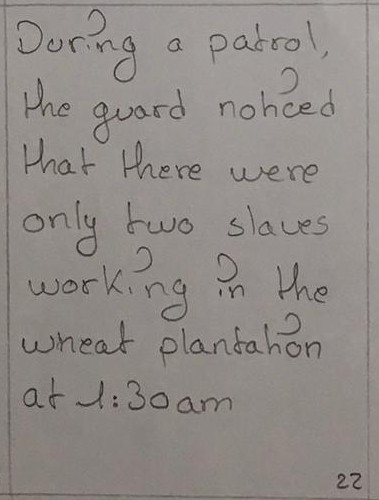 During a patrol,
the guard noticed
that there were
only two slaves
working in the
wheat plantation
at 1:30am
22